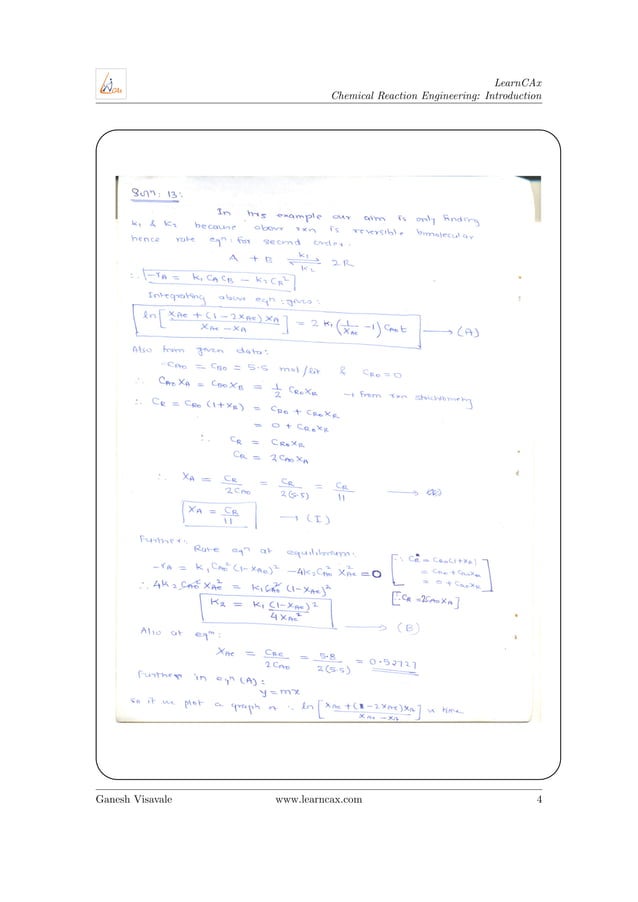 LearnCAx
Chemical Reaction Engineering: Introduction
Soln: 13:
In this example our aim is only finding
k1 & k2 because above rxn is reversible bimolecular
hence rate eqn: for second order:
A + B ⇌ 2R (k1, k2)
∴ -rA = k1 CA CB - k2 CR²
Integrating above eqn: gives:
ln [ (XAe + (1 - 2XAe) XA) / (XAe - XA) ] = 2 k1 (1/XAe - 1) CAo t → (A)
Also from given data:
CAo = CBo = 5.5 mol/lit & CRo = 0
∴ CAo XA = CBo XB = 1/2 CRo XR → From rxn stoichiometry
∴ CR = CRo (1+XR) = CRo + CRo XR
= 0 + CRo XR
∴ CR = CRo XR
CR = 2 CAo XA
∴ XA = CR / 2CAo = CR / 2(5.5) = CR / 11
XA = CR / 11 → (I)
Further:
Rate eqn at equilibrium:
-rA = k1 CAo² (1-XAe)² - 4k2 CAo² XAe² = 0
[∵ CR = CRo(1+XR)
= CRo + CRo XR
= 0 + CRo XR]
∴ 4k2 CAo² XAe² = k1 CAo² (1-XAe)²
[∵ CR = 2CAo XA]
K2 = K1 (1-XAe)² / 4XAe² → (B)
Also at eqn:
XAe = CRe / 2CAo = 5.8 / 2(5.5) = 0.52727
Further in eqn (A):
y = mx
so if we plot a graph of ∴ ln [ (XAe + (1-2XAe)XA) / (XAe - XA) ] v time
Ganesh Visavale
www.learncax.com
4